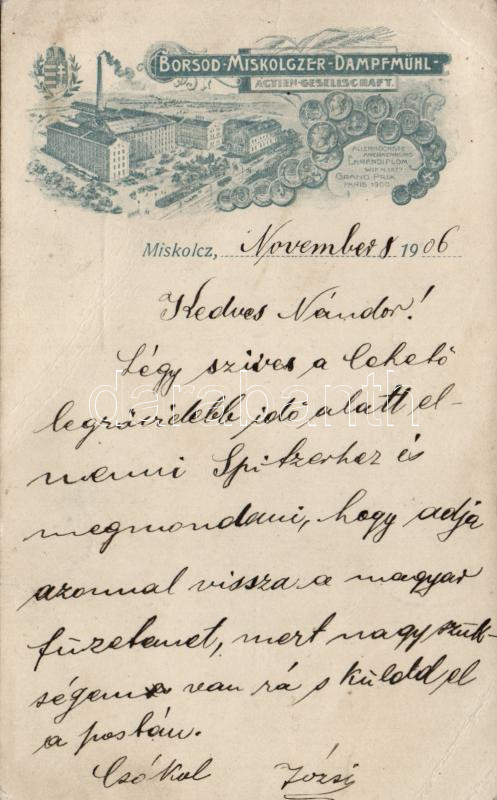 BORSOD-MISKOLCZER-DAMPFMÜHL-
ACTIEN-GESELLSCHAFT.
ALLERHÖCHSTE
ANERKENNUNG
EHRENDIPLOM
WIEN 1873
GRAND PRIX
PARIS 1900
Miskolcz, November 8 1906
Kedves Nándor!
Légy szives a lehető
legrövidebb idő alatt el-
menni Spitzerhez és
megmondani, hogy adja
azonnal vissza a magyar
füzetemet, mert nagy szük-
ségem van rá s küldd el
a postán.
Csókol Józsi
darabanth